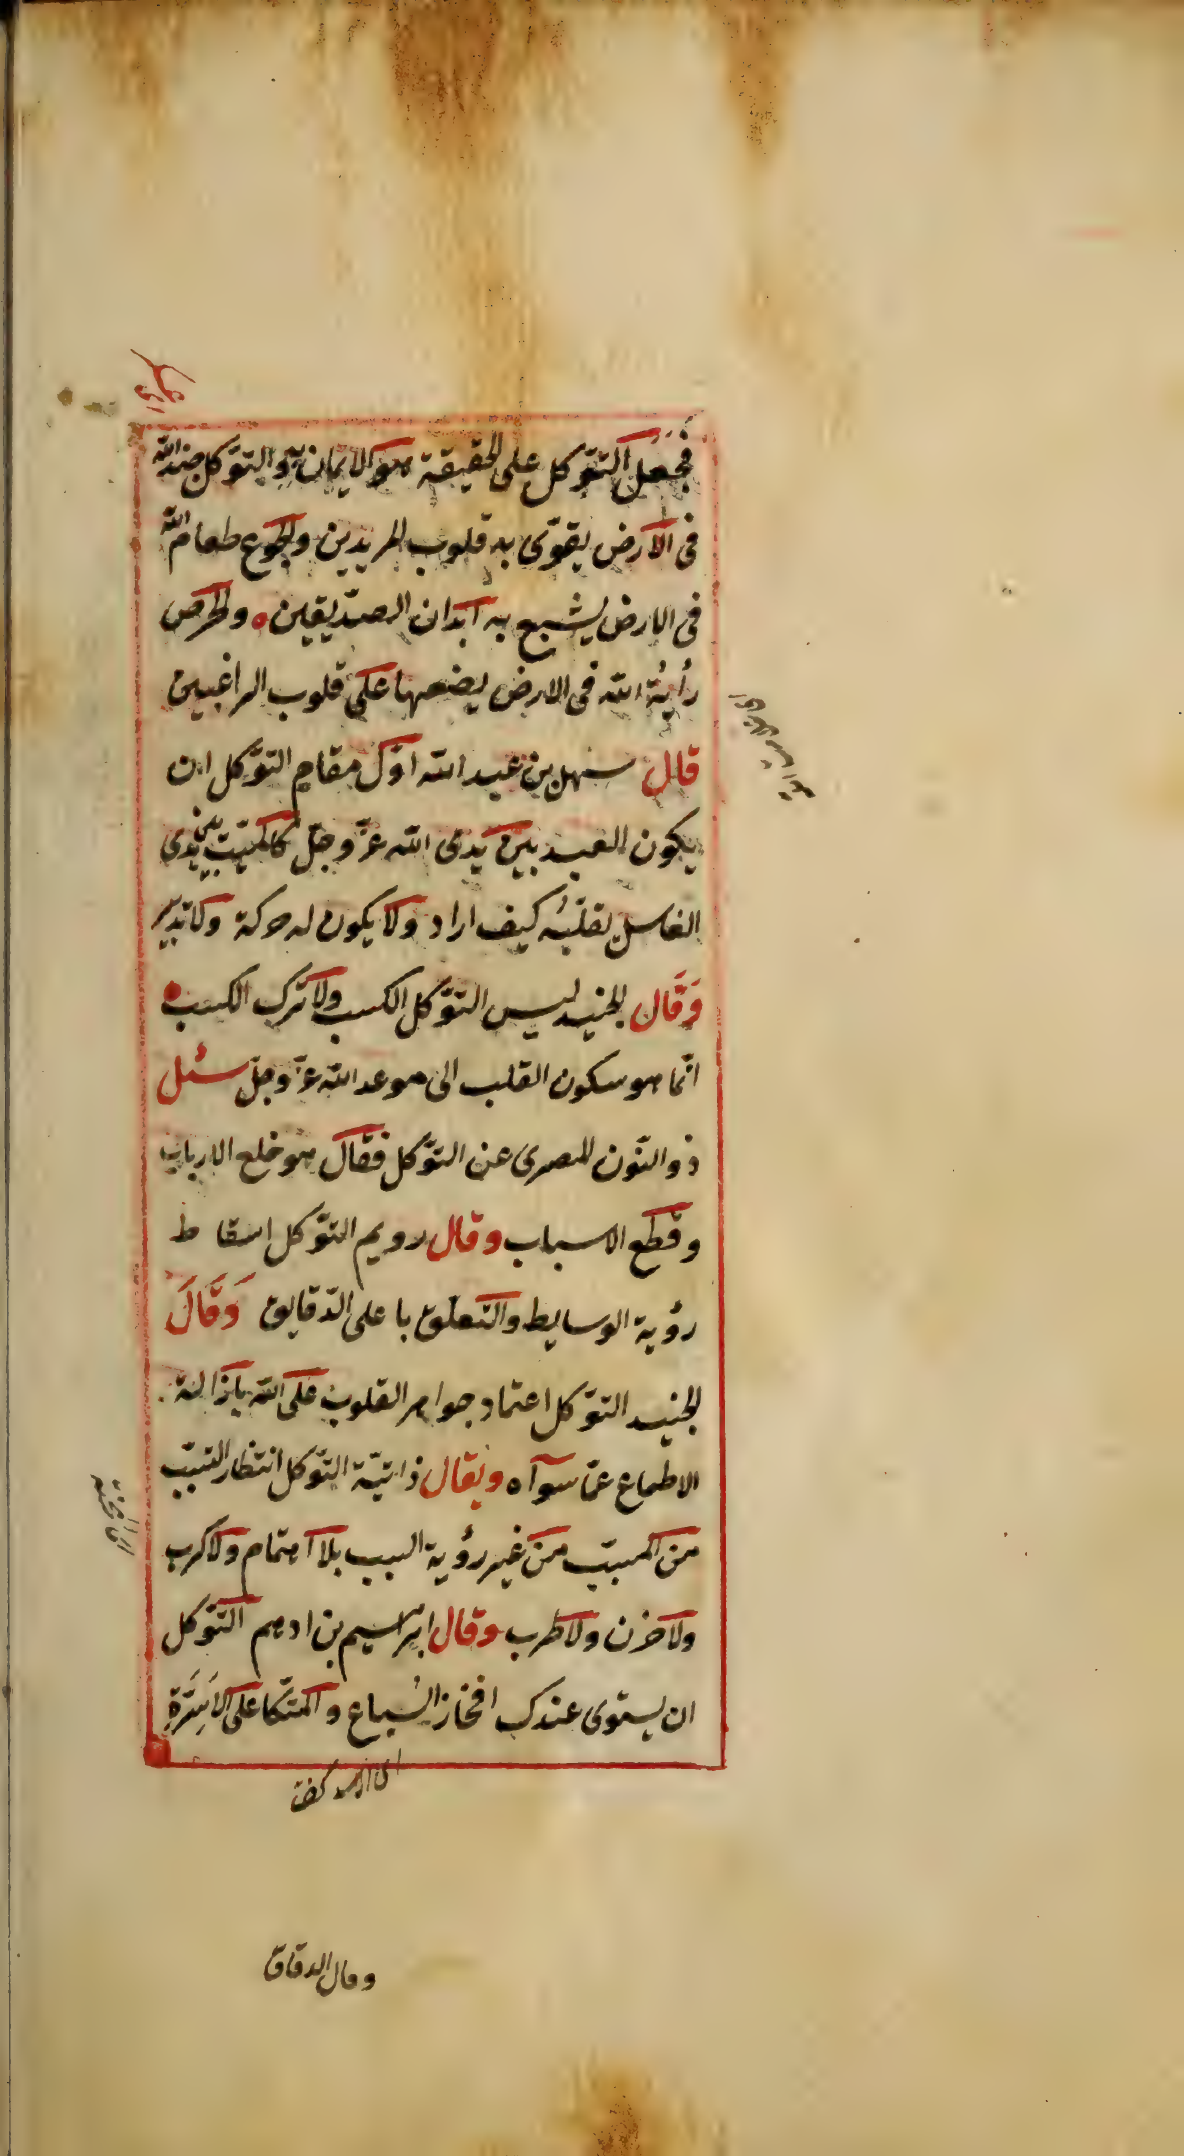 فجعل التوّكل على الحقيقة هو الايمان به والتوّكل جند الله
فى الارض يقوّى به قلوب المريدين والجوع طعام الله
فى الارض يشبع به ابدان الصدّيقين ه والحرص
رأية الله فى الارض يضعها على قلوب الراغبين
قال سهل بن عبد الله اوّل مقام التوّكل ان
يكون العبد بين يدى الله عزّ وجلّ كالميّت بين يدى
الغاسل يقلّبه كيف اراد ولا يكون له حركة ولا تدبير
وَقَال الجنيد ليس التوّكل الكسب ولا ترك الكسب
انّما هو سكون القلب الى موعد الله عزّ وجلّ سئل
ذو النّون المصرى عن التوّكل فقال هو خلع الارباب
وقطع الاسباب وقال رويم التوّكل اسقاط
رؤية الوسايط والتعلّق باعلى الدّقايق وَقَالَ
الجنيد التوّكل اعتماد جواهر القلوب على الله بازالة
الاطماع عمّا سوآه ويقال ذاتيّة التوّكل انتظار السّبب
من المسبّب من غير رؤية السبب بلا اهتمام ولا كرب
ولا حزن ولا طرب وقال ابراهيم بن ادهم التوّكل
ان يستوى عندك افخاز السّباع والمتّكا على الاَسِرَّةِ
وقال الدقاق